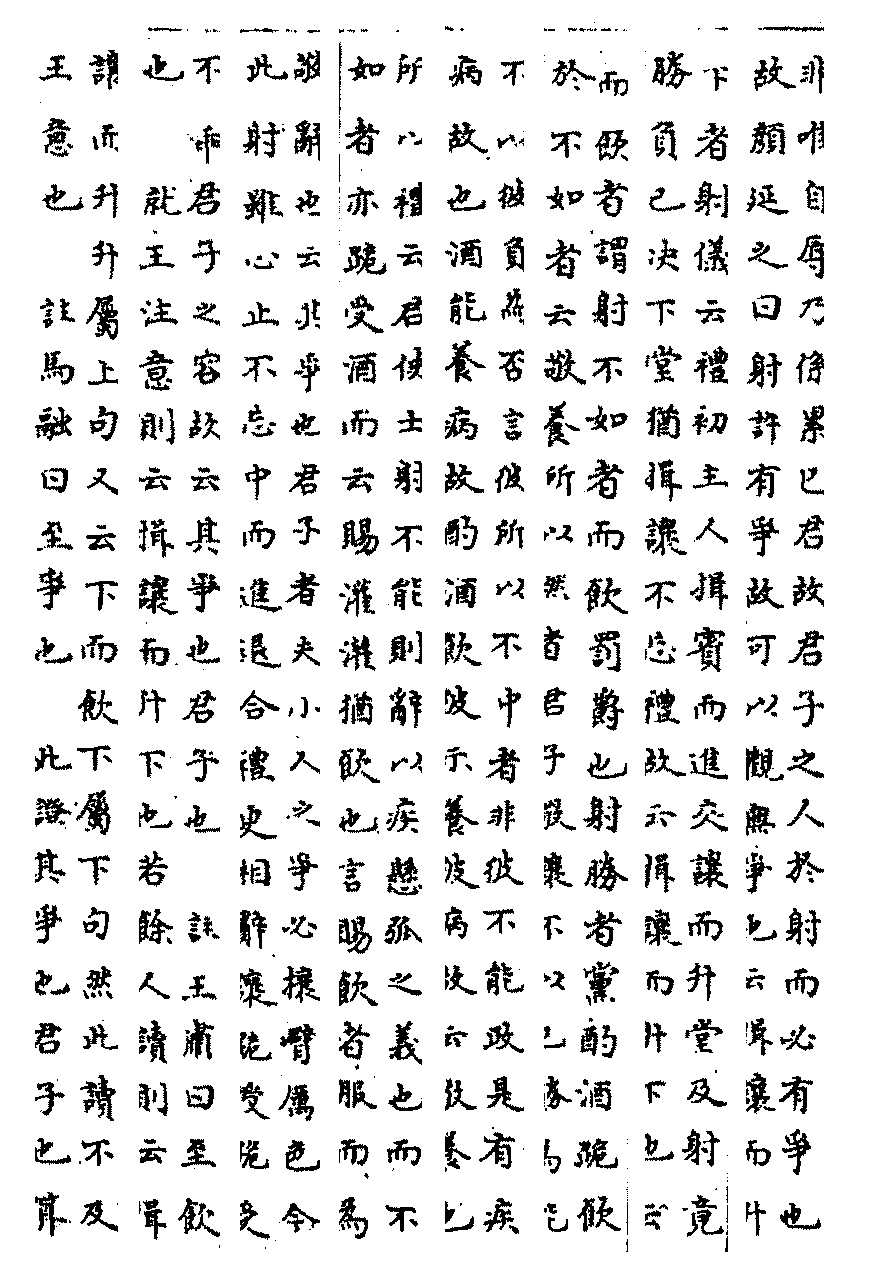 非唯自辱乃係累己君故君子之人於射而必有爭也
故顏延之曰射許有爭故可以觀無爭也云揖讓而升
下者射儀云禮初主人揖賓而進交讓而升堂及射竟
勝負已決下堂猶揖讓不忘禮故云揖讓而升下也云
而飲者謂射不如者而飲罰爵也射勝者黨酌酒跪飲
於不如者云敬養所以然者君子敬讓不以己勝為能
不以彼負為否言彼所以不中者非彼不能政是有疾
病故也酒能養病故酌酒飲彼示養彼病故云敬養也
所以禮云君使士射不能則辭以疾懸弧之義也而不
如者亦跪受酒而云賜灌灌猶飲也言賜飲者服而為
敬辭也云其爭也君子者夫小人之爭必攘臂厲色今
此射雖心止不忘中而進退合禮更相辭讓跪授跪受
不乖君子之容故云其爭也君子也 註王肅曰至飲
也 就王注意則云揖讓而升下也若餘人讀則云揖
讓而升升屬上句又云下而飲下屬下句然此讀不及
王意也 註馬融曰至爭也 此證其爭也君子也